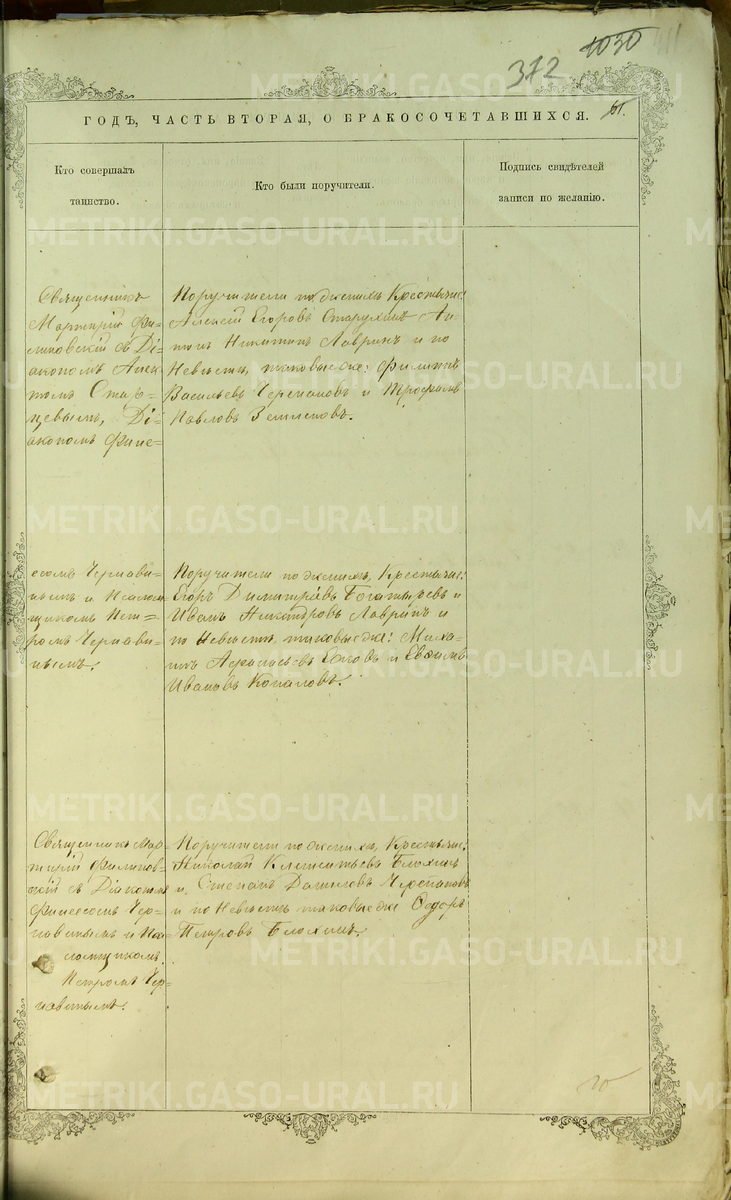 1030
372
ГОДЪ, ЧАСТЬ ВТОРАЯ, О БРАКОСОЧЕТАВШИХСЯ.
Кто совершалъ
таинство.
Кто были поручители.
Подпись свидѣтелей
записи по желанію.
Священникъ
Мартирій Фи-
липовскій съ Ді-
акономъ
Стар-
цевымъ, Ді-
акономъ Фине-
Поручители по женихѣ, Крестьяне:
Алексѣй Егоровъ Старухинъ Ан-
тонъ Никитинъ Лавринъ и по
Невѣстѣ, таковые же: Филиппъ
Васильевъ Черепановъ и Трофимъ
Павловъ
есомъ Чернави-
нымъ и Псалом-
щикомъ Пет-
ромъ Чернави-
нымъ.
Поручители по женихѣ, Крестьяне:
Егоръ Димитріевъ Богатыревъ и
Иванъ Лавринъ и
по Невѣстѣ, таковые же: Миха-
илъ и Евфимъ
Ивановъ
Священникъ Мар-
тирій Филипов-
скій съ Діакономъ
Финеесомъ Чер-
навинымъ и Пса-
ломщикомъ
Петромъ Чер-
навинымъ.
Поручители по женихѣ, Крестьяне:
Николай Климентьевъ Блохинъ
и Степанъ Даниловъ Черепановъ
и по Невѣстѣ таковые же Ѳедоръ
Петровъ Блохинъ.
METRIKI.GASO-URAL.RU